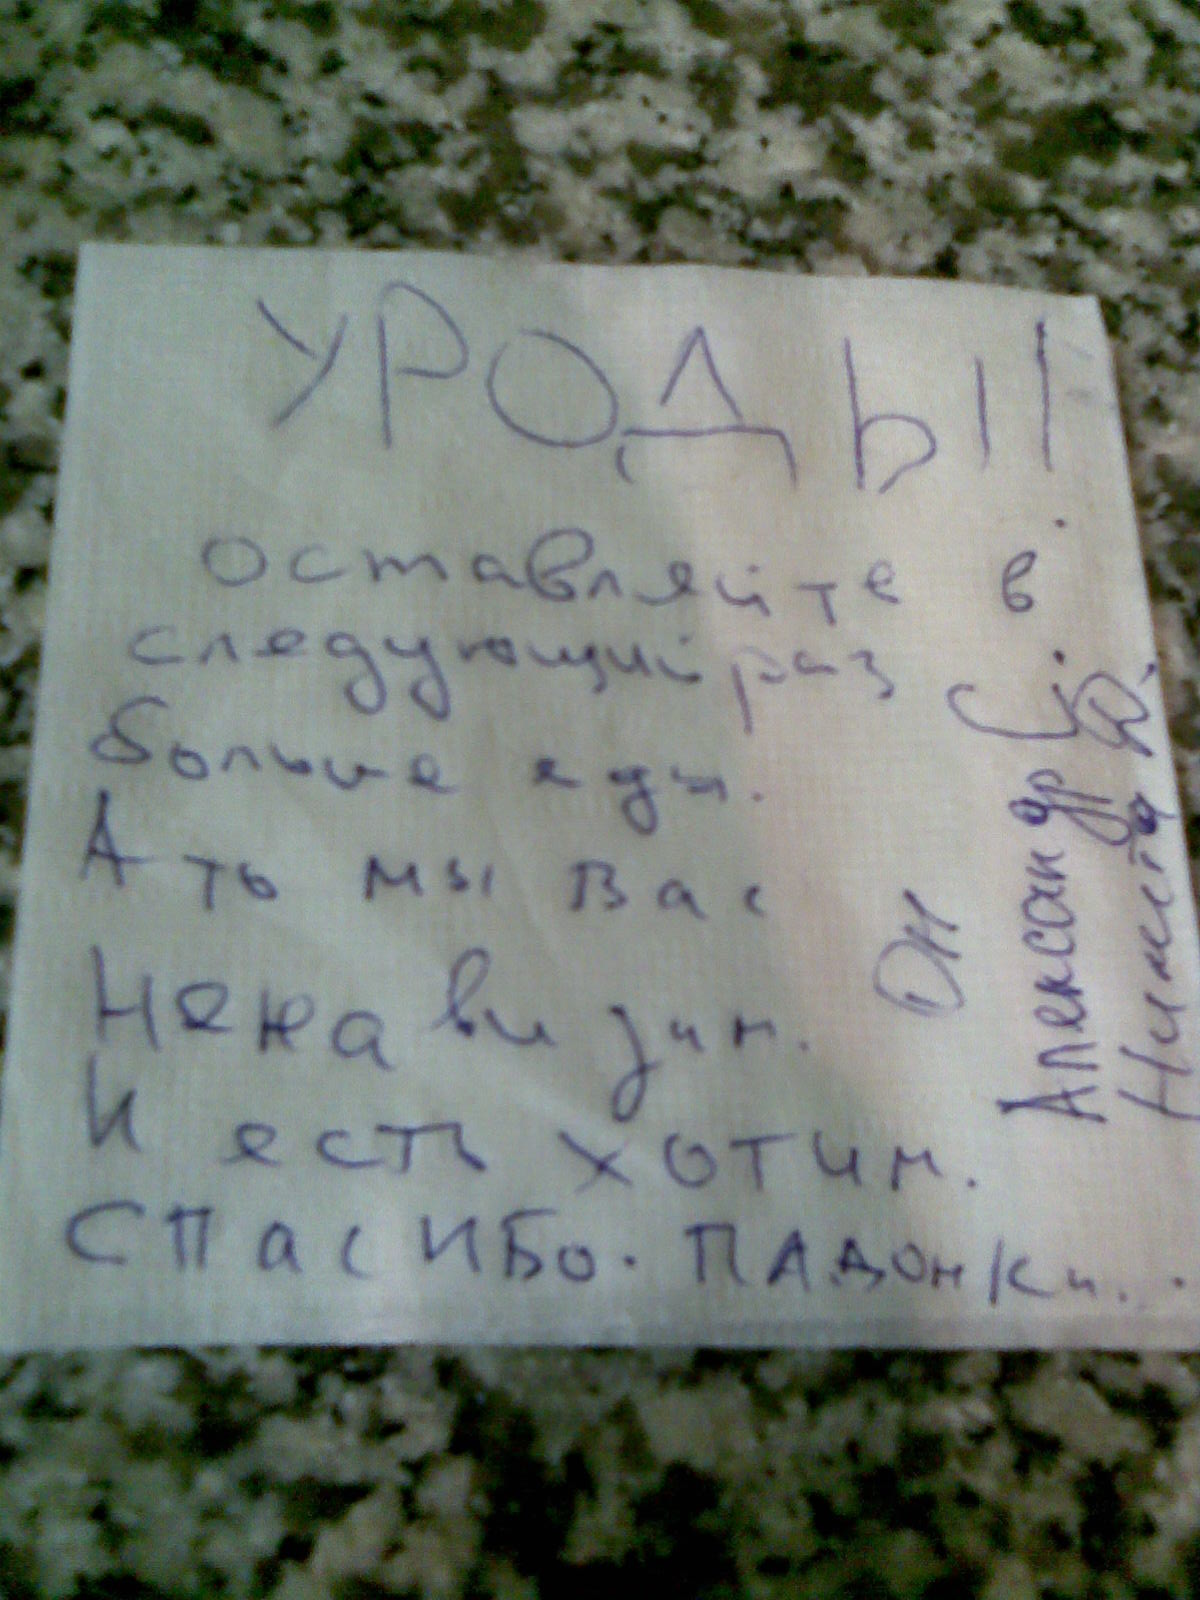 УРОДЫ!
оставляйте в
следующий раз
больше еды.
А ть мы вас
Ненавидим.
И есть хотим.
СПасИБо. ПАДОНКи...
ОН
Александр С.
Никита